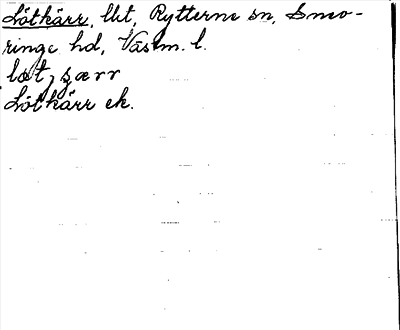 Lötkärr, llt, Rytterne sn, Snev-
ringe hd, Västm. l.
lœt, ʂærr
Lötkärr ek.